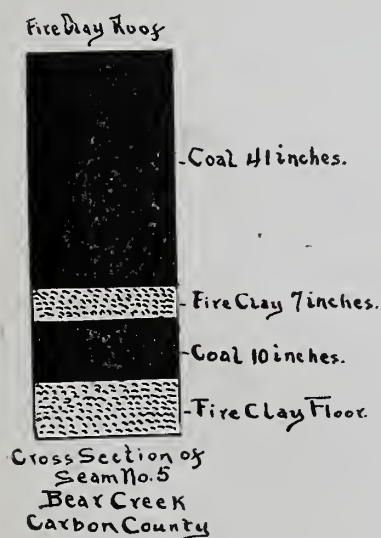 Fire Clay Roof
Coal 41 inches.
Fire Clay 7 inches.
Coal 10 inches.
Fire Clay Floor.
Cross Section of
Seam No. 5
Bear Creek
Carbon County